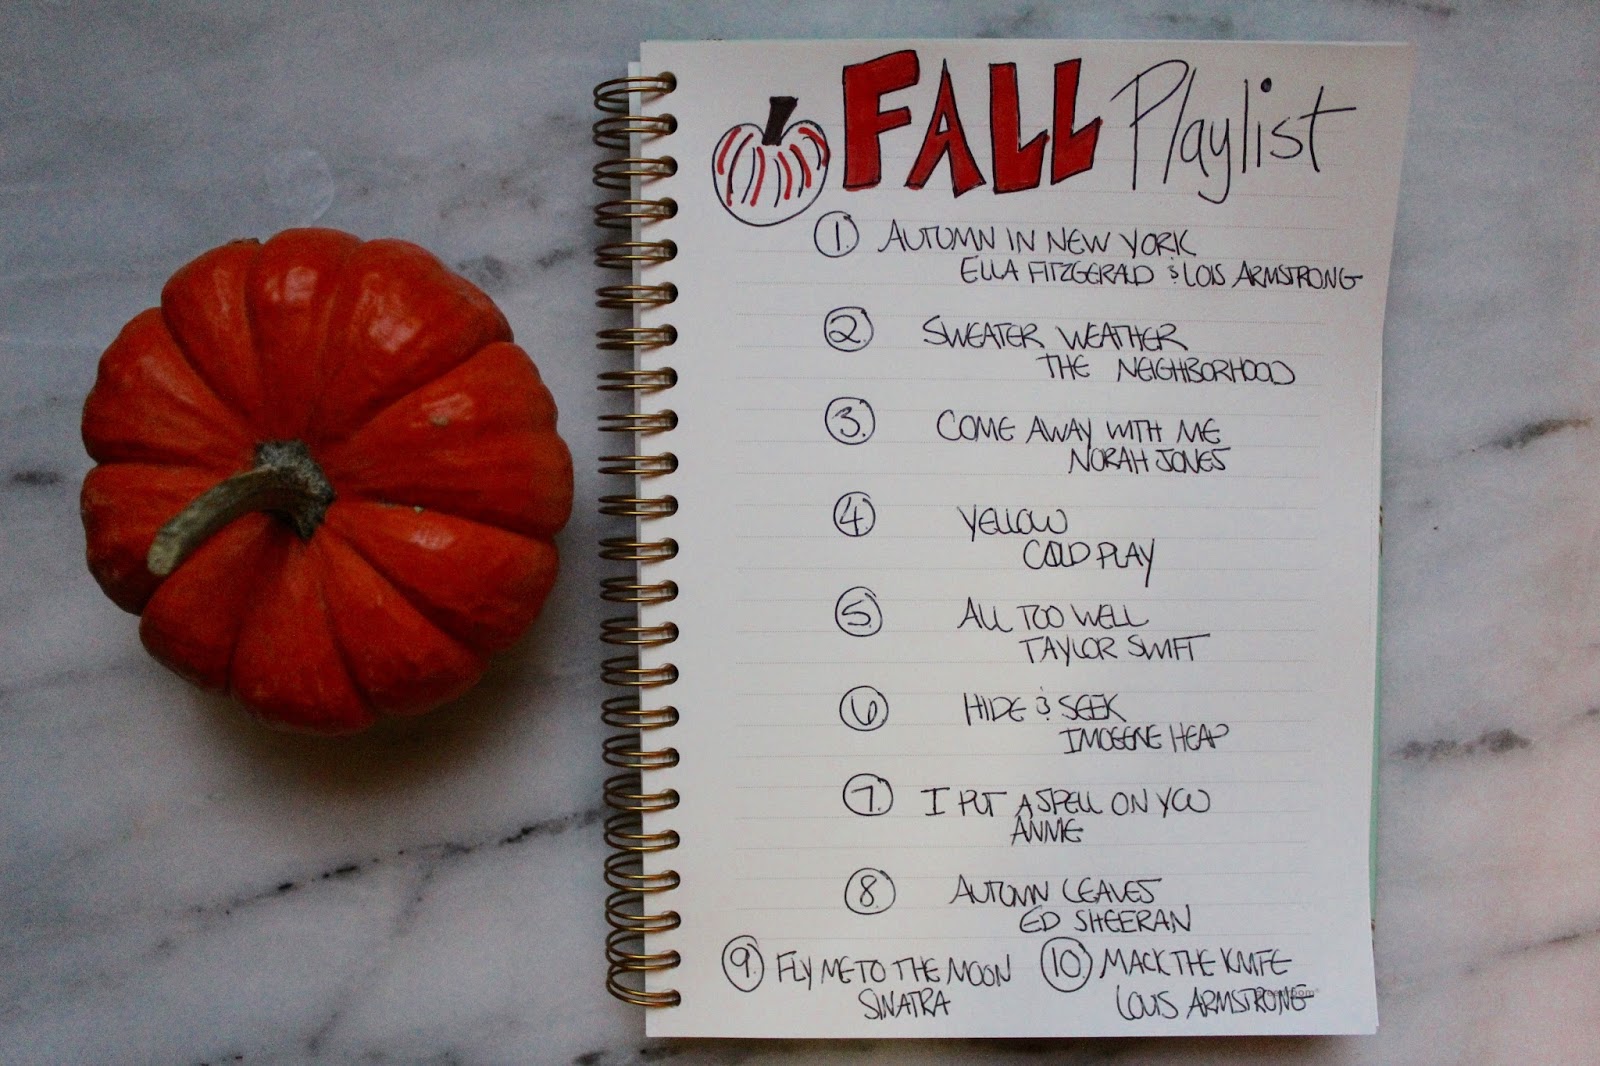 FALL Playlist
1. AUTUMN IN NEW YORK
ELLA FITZGERALD & LOIS ARMSTRONG
2. SWEATER WEATHER
THE NEIGHBORHOOD
3. COME AWAY WITH ME
NORAH JONES
4. YELLOW
COLD PLAY
5. ALL TOO WELL
TAYLOR SWIFT
6. HIDE & SEEK
IMOGENE HEAP
7. I PUT A SPELL ON YOU
ANNIE
8. AUTUMN LEAVES
ED SHEERAN
9. FLY ME TO THE MOON
SINATRA
10. MACK THE KNIFE
LOUIS ARMSTRONG